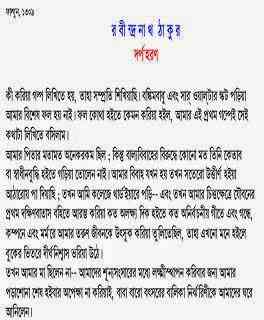 ফাল্গুন, ১৩০৯
রবীন্দ্রনাথ ঠাকুর
দর্পহরণ
কী করিয়া গল্প লিখিতে হয়, তাহা সম্প্রতি শিখিয়াছি। বঙ্কিমবাবু এবং সার্ ওয়াল্‌টার স্কট পড়িয়া
আমার বিশেষ ফল হয় নাই। ফল কোথা হইতে কেমন করিয়া হইল, আমার এই প্রথম গল্পেই সেই
কথাটা লিখিতে বসিলাম।
আমার পিতার মতামত অনেকরকম ছিল; কিন্তু বাল্যবিবাহের বিরুদ্ধে কোনো মত তিনি কেতাব
বা স্বাধীনবুদ্ধি হইতে গড়িয়া তোলেন নাই। আমার বিবাহ যখন হয় তখন সতেরো উত্তীর্ণ হইয়া
আঠারোয় পা দিয়াছি; তখন আমি কলেজে থার্ডইয়ারে পড়ি— এবং তখন আমার চিত্তক্ষেত্রে যৌবনের
প্রথম দক্ষিণবাতাস বহিতে আরম্ভ করিয়া কত অলক্ষ্য দিক হইতে কত অনির্বচনীয় গীতে এবং গন্ধে,
কম্পনে এবং মর্মরে আমার তরুণ জীবনকে উৎসুক করিয়া তুলিতেছিল, তাহা এখনো মনে হইলে
বুকের ভিতরে দীর্ঘনিশ্বাস ভরিয়া উঠে।
তখন আমার মা ছিলেন না— আমাদের শূন্যসংসারের মধ্যে লক্ষ্মীস্থাপন করিবার জন্য আমার
পড়াশোনা শেষ হইবার অপেক্ষা না করিয়াই, বাবা বারো বৎসরের বালিকা নির্ঝরিণীকে আমাদের ঘরে
আনিলেন।